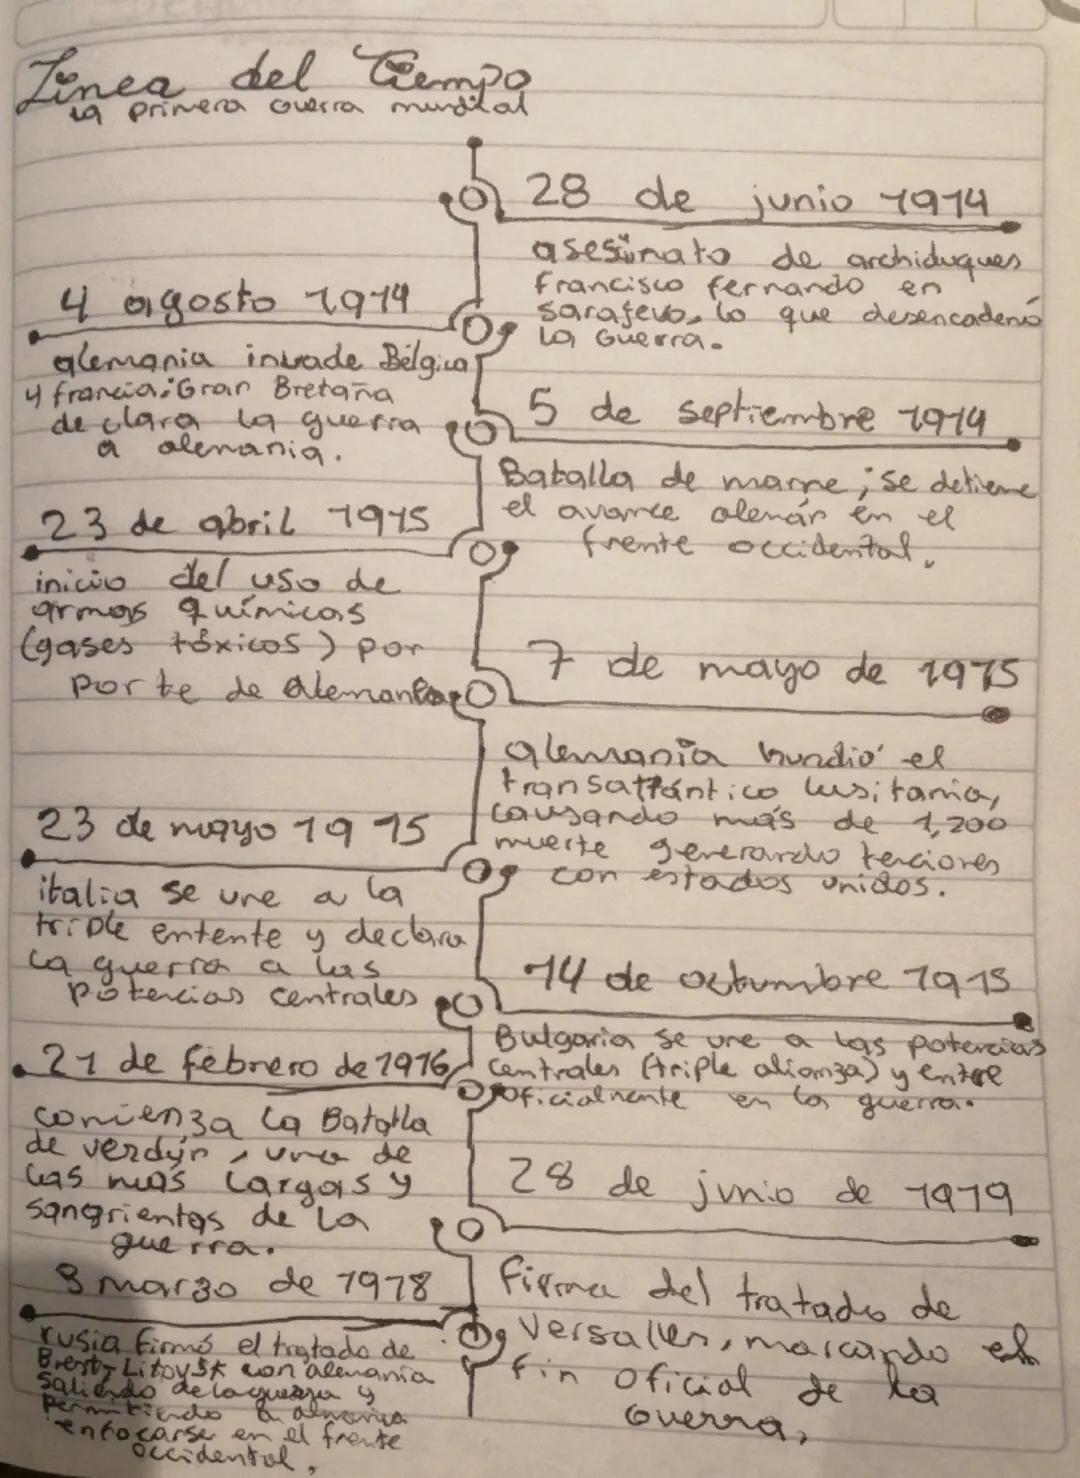 Linea del Tiempo
la primera Guerra mundial
28 de junio 1914
asesinato de archiduques
Francisco fernando en
sarajevo, lo que desencadenó
la Guerra.
4 agosto 1914
alemania invade Bélgica
y francia; Gran Bretaña
declara la guerra
a alemania.
5 de septiembre 1914
Batalla de marne; se detiene
el avance alemán en el
frente occidental.
23 de abril 1915
inicio del uso de
armas químicas
(gases tóxicos) por
parte de Alemania
7 de mayo de 1915
alemania hundió el
transatlántico lusitania,
causando más de 1,200
muerte generando tenciones
con estados unidos.
23 de mayo 1915
italia se une a la
triple entente y declara
la guerra a las
potencias centrales
14 de octumbre 1915
Bulgaria se une a las potencias
centrales (triple alianza) y entre
oficialmente en la guerra.
21 de febrero de 1916
comienza la Batalla
de verdún, una de
las más largas y
sangrientas de la
guerra.
28 de junio de 1919
firma del tratado de
Versalles, marcando el
fin oficial de la
Guerra,
3 marzo de 1918
rusia firmó el tratado de
Brest-Litovsk con alemania
saliendo de la guerra y
permitiendo a
enfocarse en el frente
occidental.